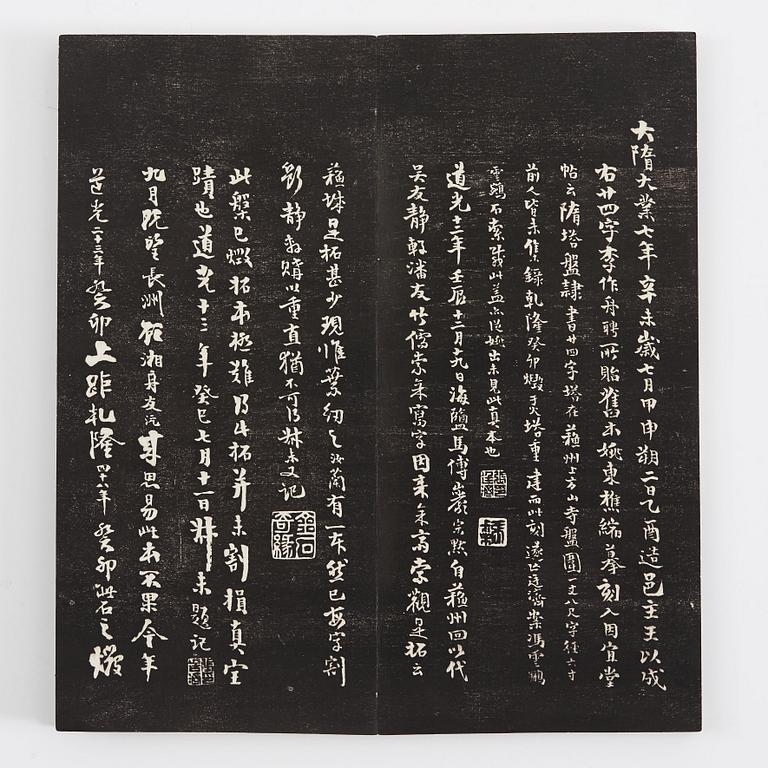 大隋大業七年辛未歲七月甲申朔二日乙酉造邑主王以成
右廿四字李作舟聘所貽舊本姚東樵綸摹刻入因宜堂
帖云隋塔盤隸書廿四字塔在蘇州上方山寺盤圍一丈八尺字徑六寸
前人皆未集錄乾隆癸卯燬于火塔重建而此刻遂亡近濟寧馮雲鵬
雲鵷石索載此蓋亦從姚出未見此真本也
道光十二年壬辰十二月十九日海鹽馬傅巖宗默自蘇州回以代
吳友靜軒潘友竹儒索余寫字因來余齋索觀是拓云
蘇城是拓甚少現惟葉紉之汝蘭有一本然已每字割
彭靜齋購以重直猶不可得叔未又記
金石奇緣
此盤已燬拓本極難得此拓并未割損真宝
蹟也道光十三年癸巳七月十一日叔未題記
九月既望長洲顧湘舟友沅來思易此本不果今年
道光二十三年癸卯上距乾隆四十八年癸卯此石之燬